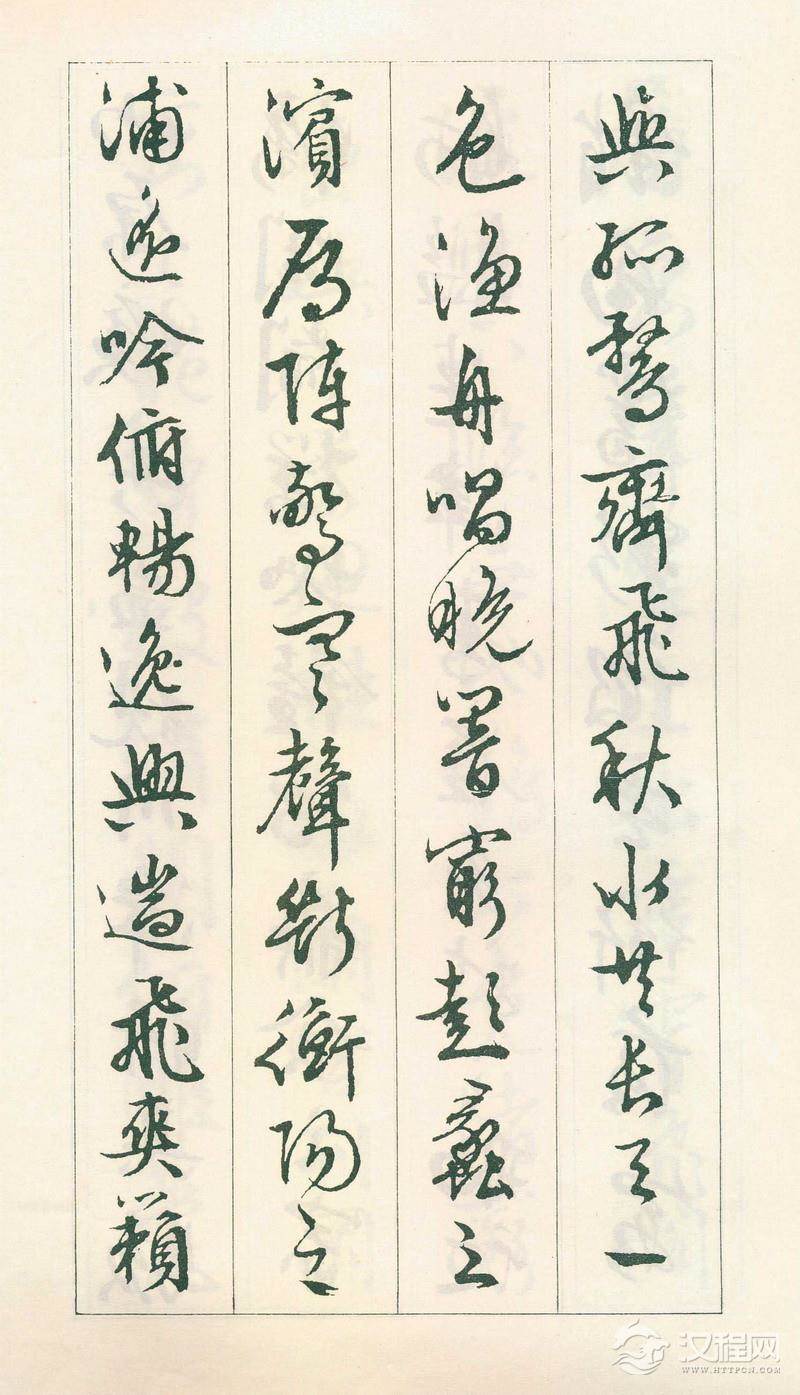 與孤鶩齊飛秋水共長天一
色漁舟唱晚響窮彭蠡之
濱雁陣驚寒聲斷衡陽之
浦遙吟俯暢逸興遄飛爽籟
汉程网
WWW.HTTPCN.COM